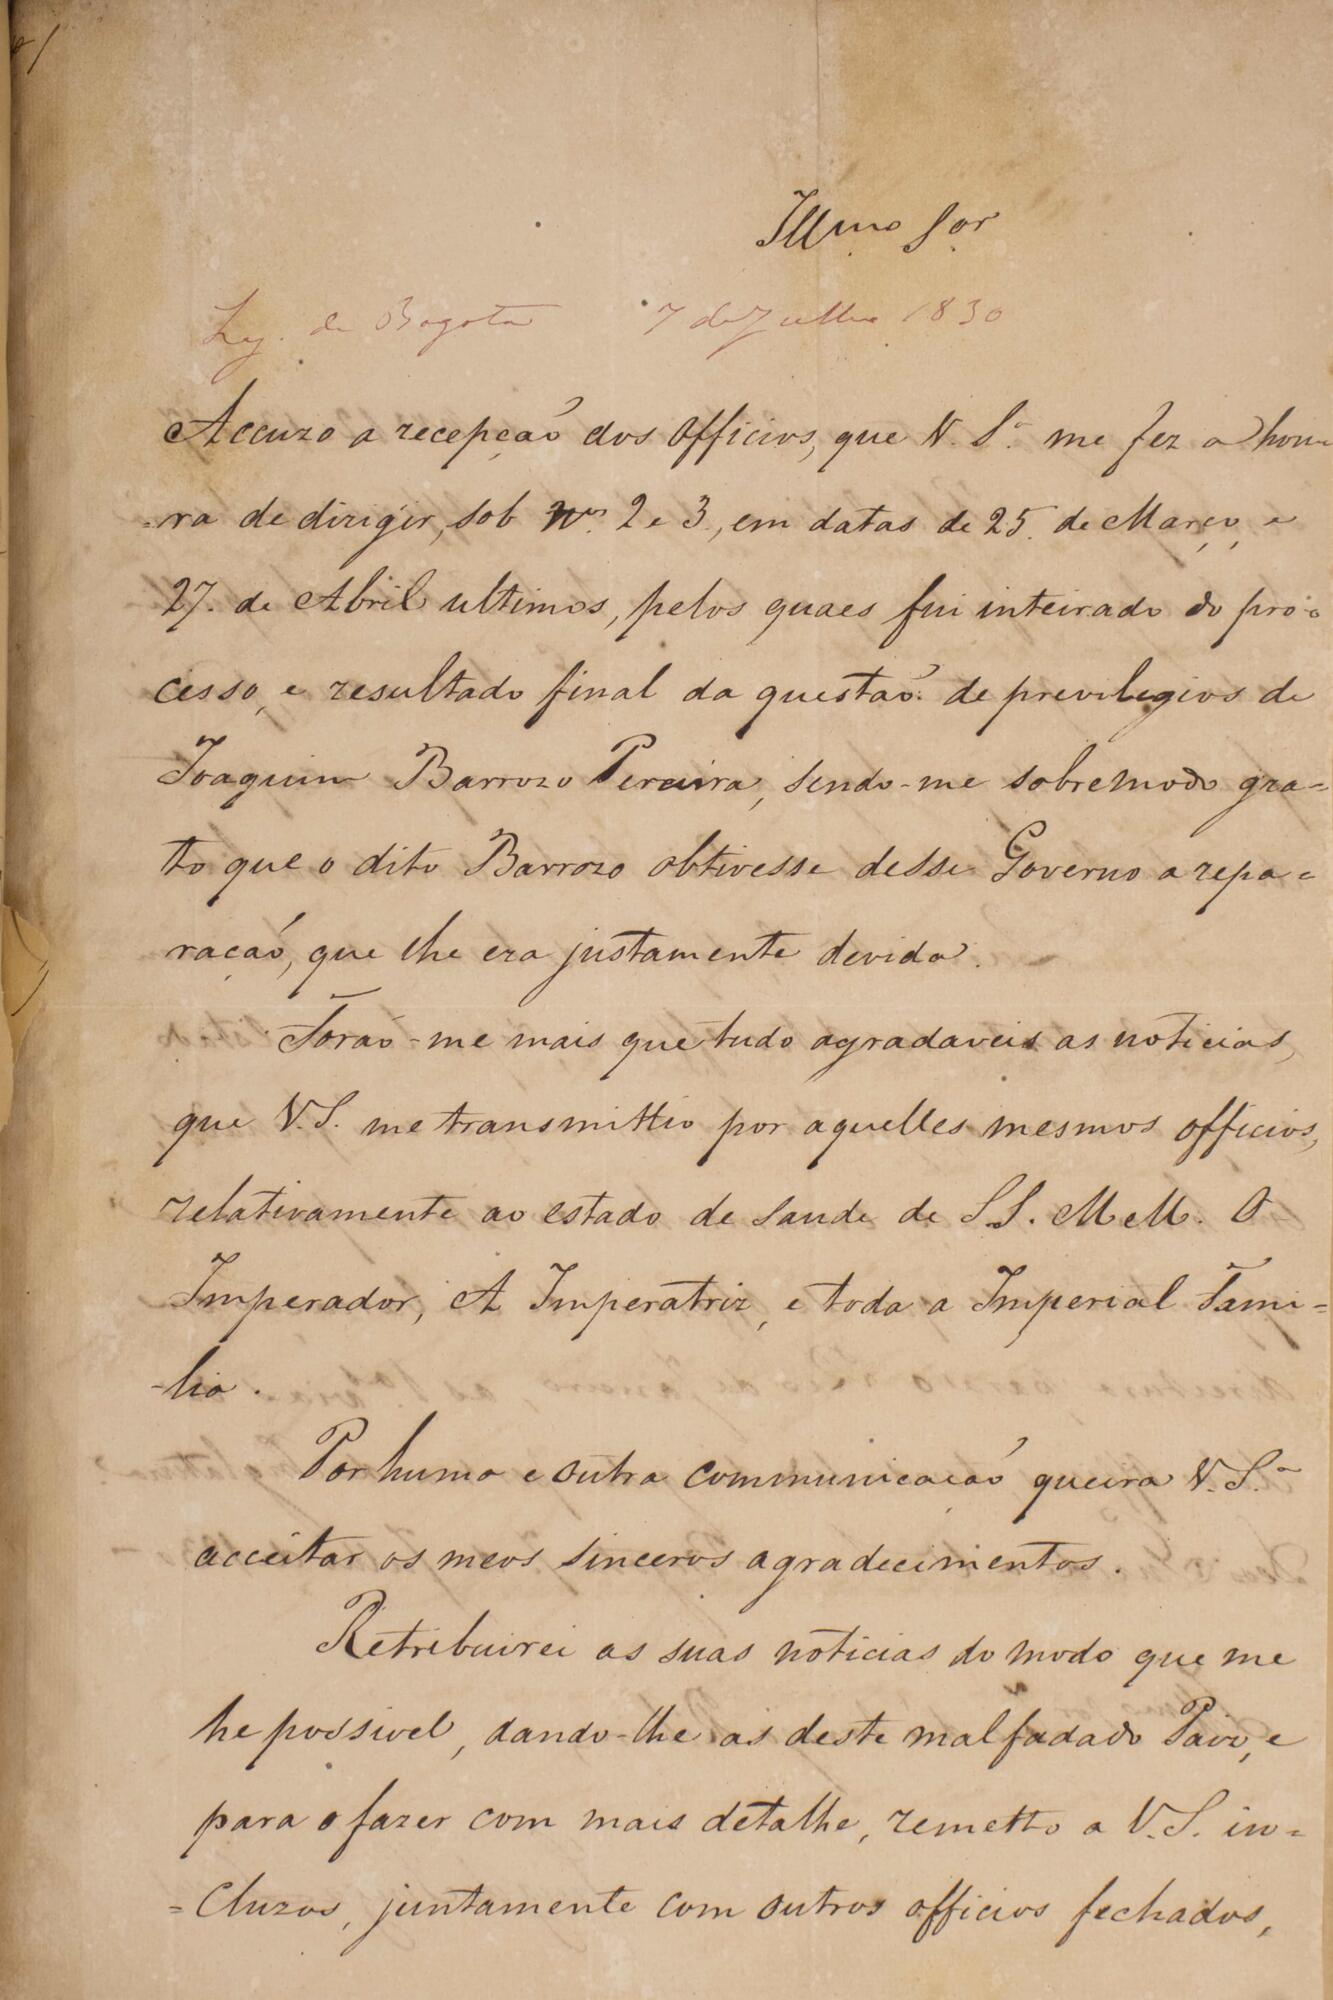 Illmo Sor
Leg. de Bogota 7 de Julho 1830
Accuzo a recepçaõ dos Officios, que V. Sª me fez a hon-
-ra de dirigir, sob Nos. 2 e 3, em datas de 25. de Março, e
27. de Abril ultimos, pelos quaes fui inteirado do pro-
cesso, e resultado final da questaõ de previlegios de
Joaquim Barrozo Pereira, sendo-me sobremodo gra-
to que o dito Barrozo obtivesse desse Governo a repa-
raçaõ, que lhe era justamente devida.
Foraõ-me mais que tudo agradaveis as noticias,
que V.S. me transmittio por aquelles mesmos officios,
relativamente ao estado de saude de SS. MM. O
Imperador, A Imperatriz, e toda a Imperial Fami=
-lia.
Por huma e outra communicaçaõ queira V.Sª
acceitar os meos sinceros agradecimentos.
Retribuirei as suas noticias do modo que me
he possivel, dando-lhe as deste malfadado Paiz, e
para o fazer com mais detalhe, remetto a V.S. in=
=cluzos, juntamente com outros officios fechados,